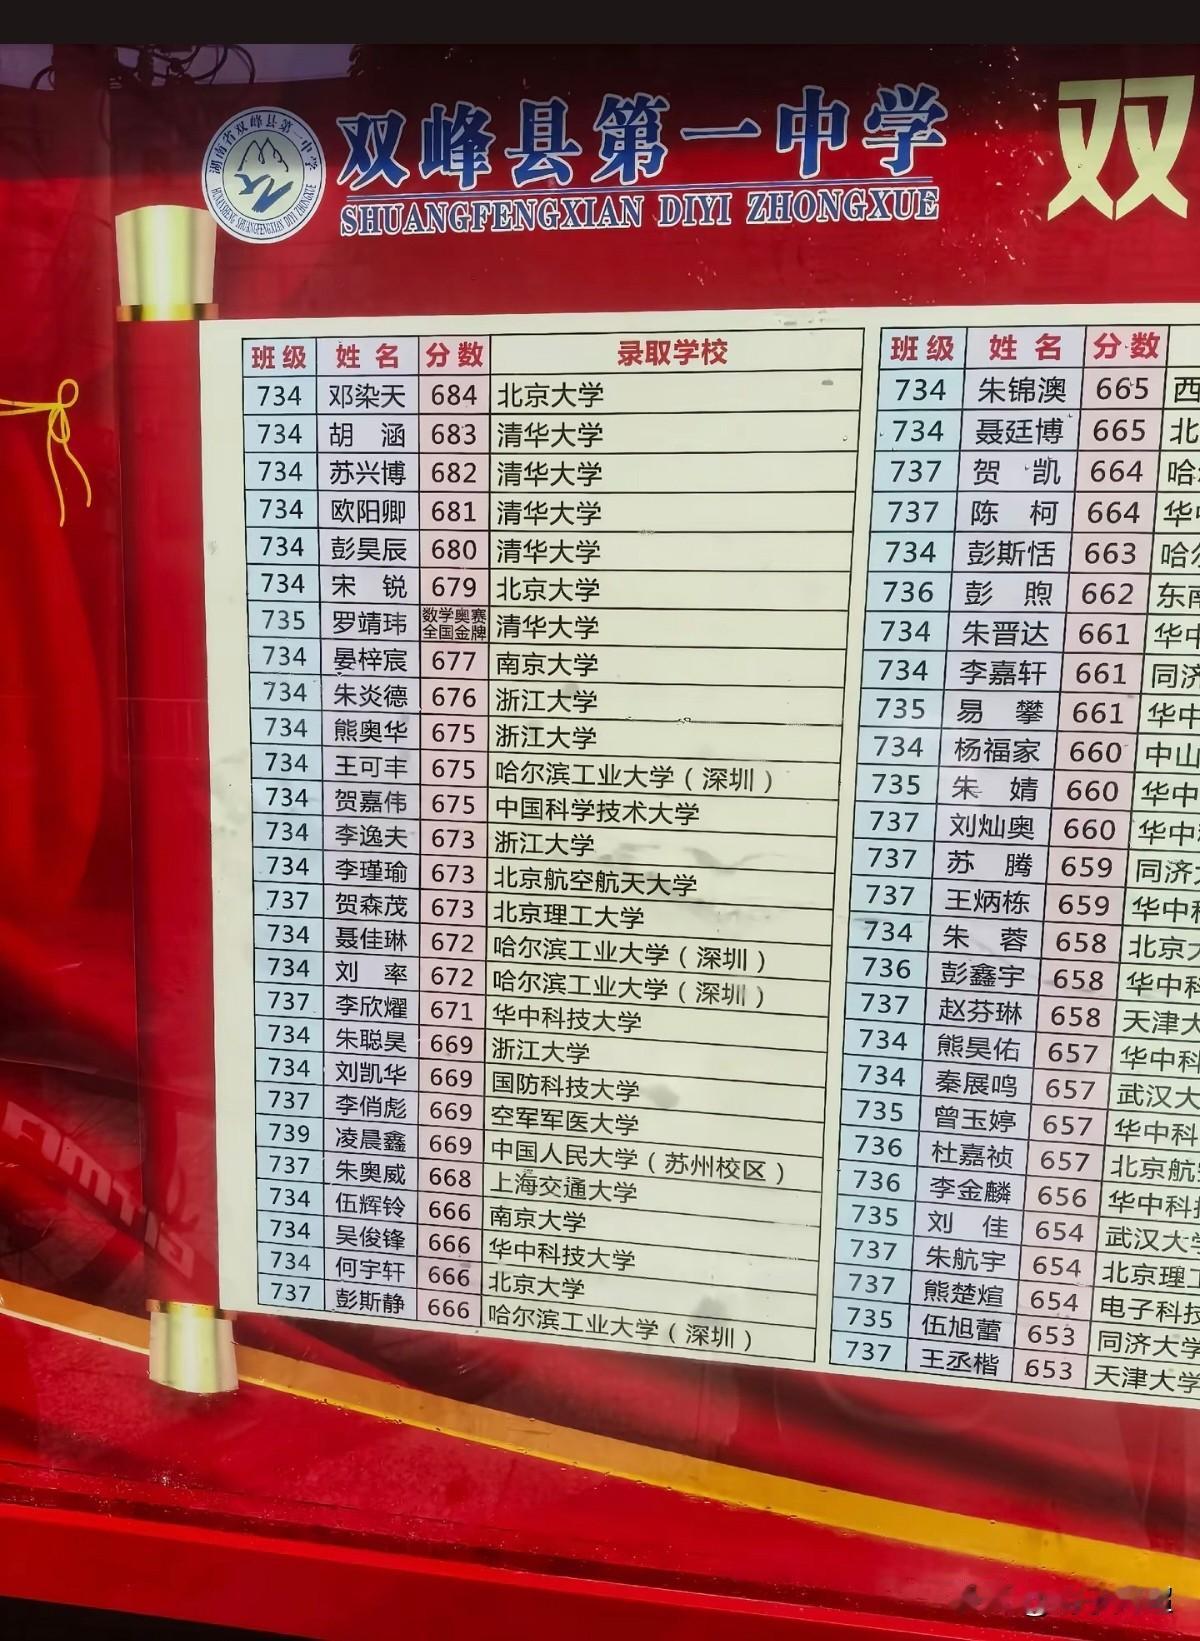 湖南省双峰县第一中学
HUNANSHENG SHUANGFENGXIAN DIYI ZHONGXUE
双峰县第一中学
SHUANGFENGXIAN DIYI ZHONGXUE
双
班级 姓名 分数 录取学校
734 邓染天 684 北京大学
734 胡涵 683 清华大学
734 苏兴博 682 清华大学
734 欧阳卿 681 清华大学
734 彭昊辰 680 清华大学
734 宋锐 679 北京大学
735 罗靖玮 数学奥赛全国金牌 清华大学
734 晏梓宸 677 南京大学
734 朱炎德 676 浙江大学
734 熊奥华 675 浙江大学
734 王可丰 675 哈尔滨工业大学（深圳）
734 贺嘉伟 675 中国科学技术大学
734 李逸夫 673 浙江大学
734 李瑾瑜 673 北京航空航天大学
737 贺森茂 673 北京理工大学
734 聂佳琳 672 哈尔滨工业大学（深圳）
734 刘率 672 哈尔滨工业大学（深圳）
737 李欣燿 671 华中科技大学
734 朱聪昊 669 浙江大学
734 刘凯华 669 国防科技大学
737 李俏彪 669 空军军医大学
739 凌晨鑫 669 中国人民大学（苏州校区）
737 朱奥威 668 上海交通大学
734 伍辉铃 666 南京大学
734 吴俊锋 666 华中科技大学
734 何宇轩 666 北京大学
737 彭斯静 666 哈尔滨工业大学（深圳）
班级 姓名 分数
734 朱锦澳 665 西
734 聂廷博 665 北
737 贺凯 664 哈
737 陈柯 664 华中
734 彭斯恬 663 哈尔
736 彭煦 662 东南
734 朱晋达 661 华中
734 李嘉轩 661 同济
735 易攀 661 华中
734 杨福家 660 中山
735 朱婧 660 华中
737 刘灿奥 660 华中
737 苏腾 659 同济大
737 王炳栋 659 华中科
734 朱蓉 658 北京大
736 彭鑫宇 658 华中科
737 赵芬琳 658 天津大
734 熊昊佑 657 华中科
734 秦展鸣 657 武汉大
735 曾玉婷 657 华中科
736 杜嘉祯 657 北京航
736 李金麟 656 华中科技
735 刘佳 654 武汉大学
737 朱航宇 654 北京理工
737 熊楚煊 654 电子科技
735 伍旭蕾 653 同济大学
737 王丞楷 653 天津大学